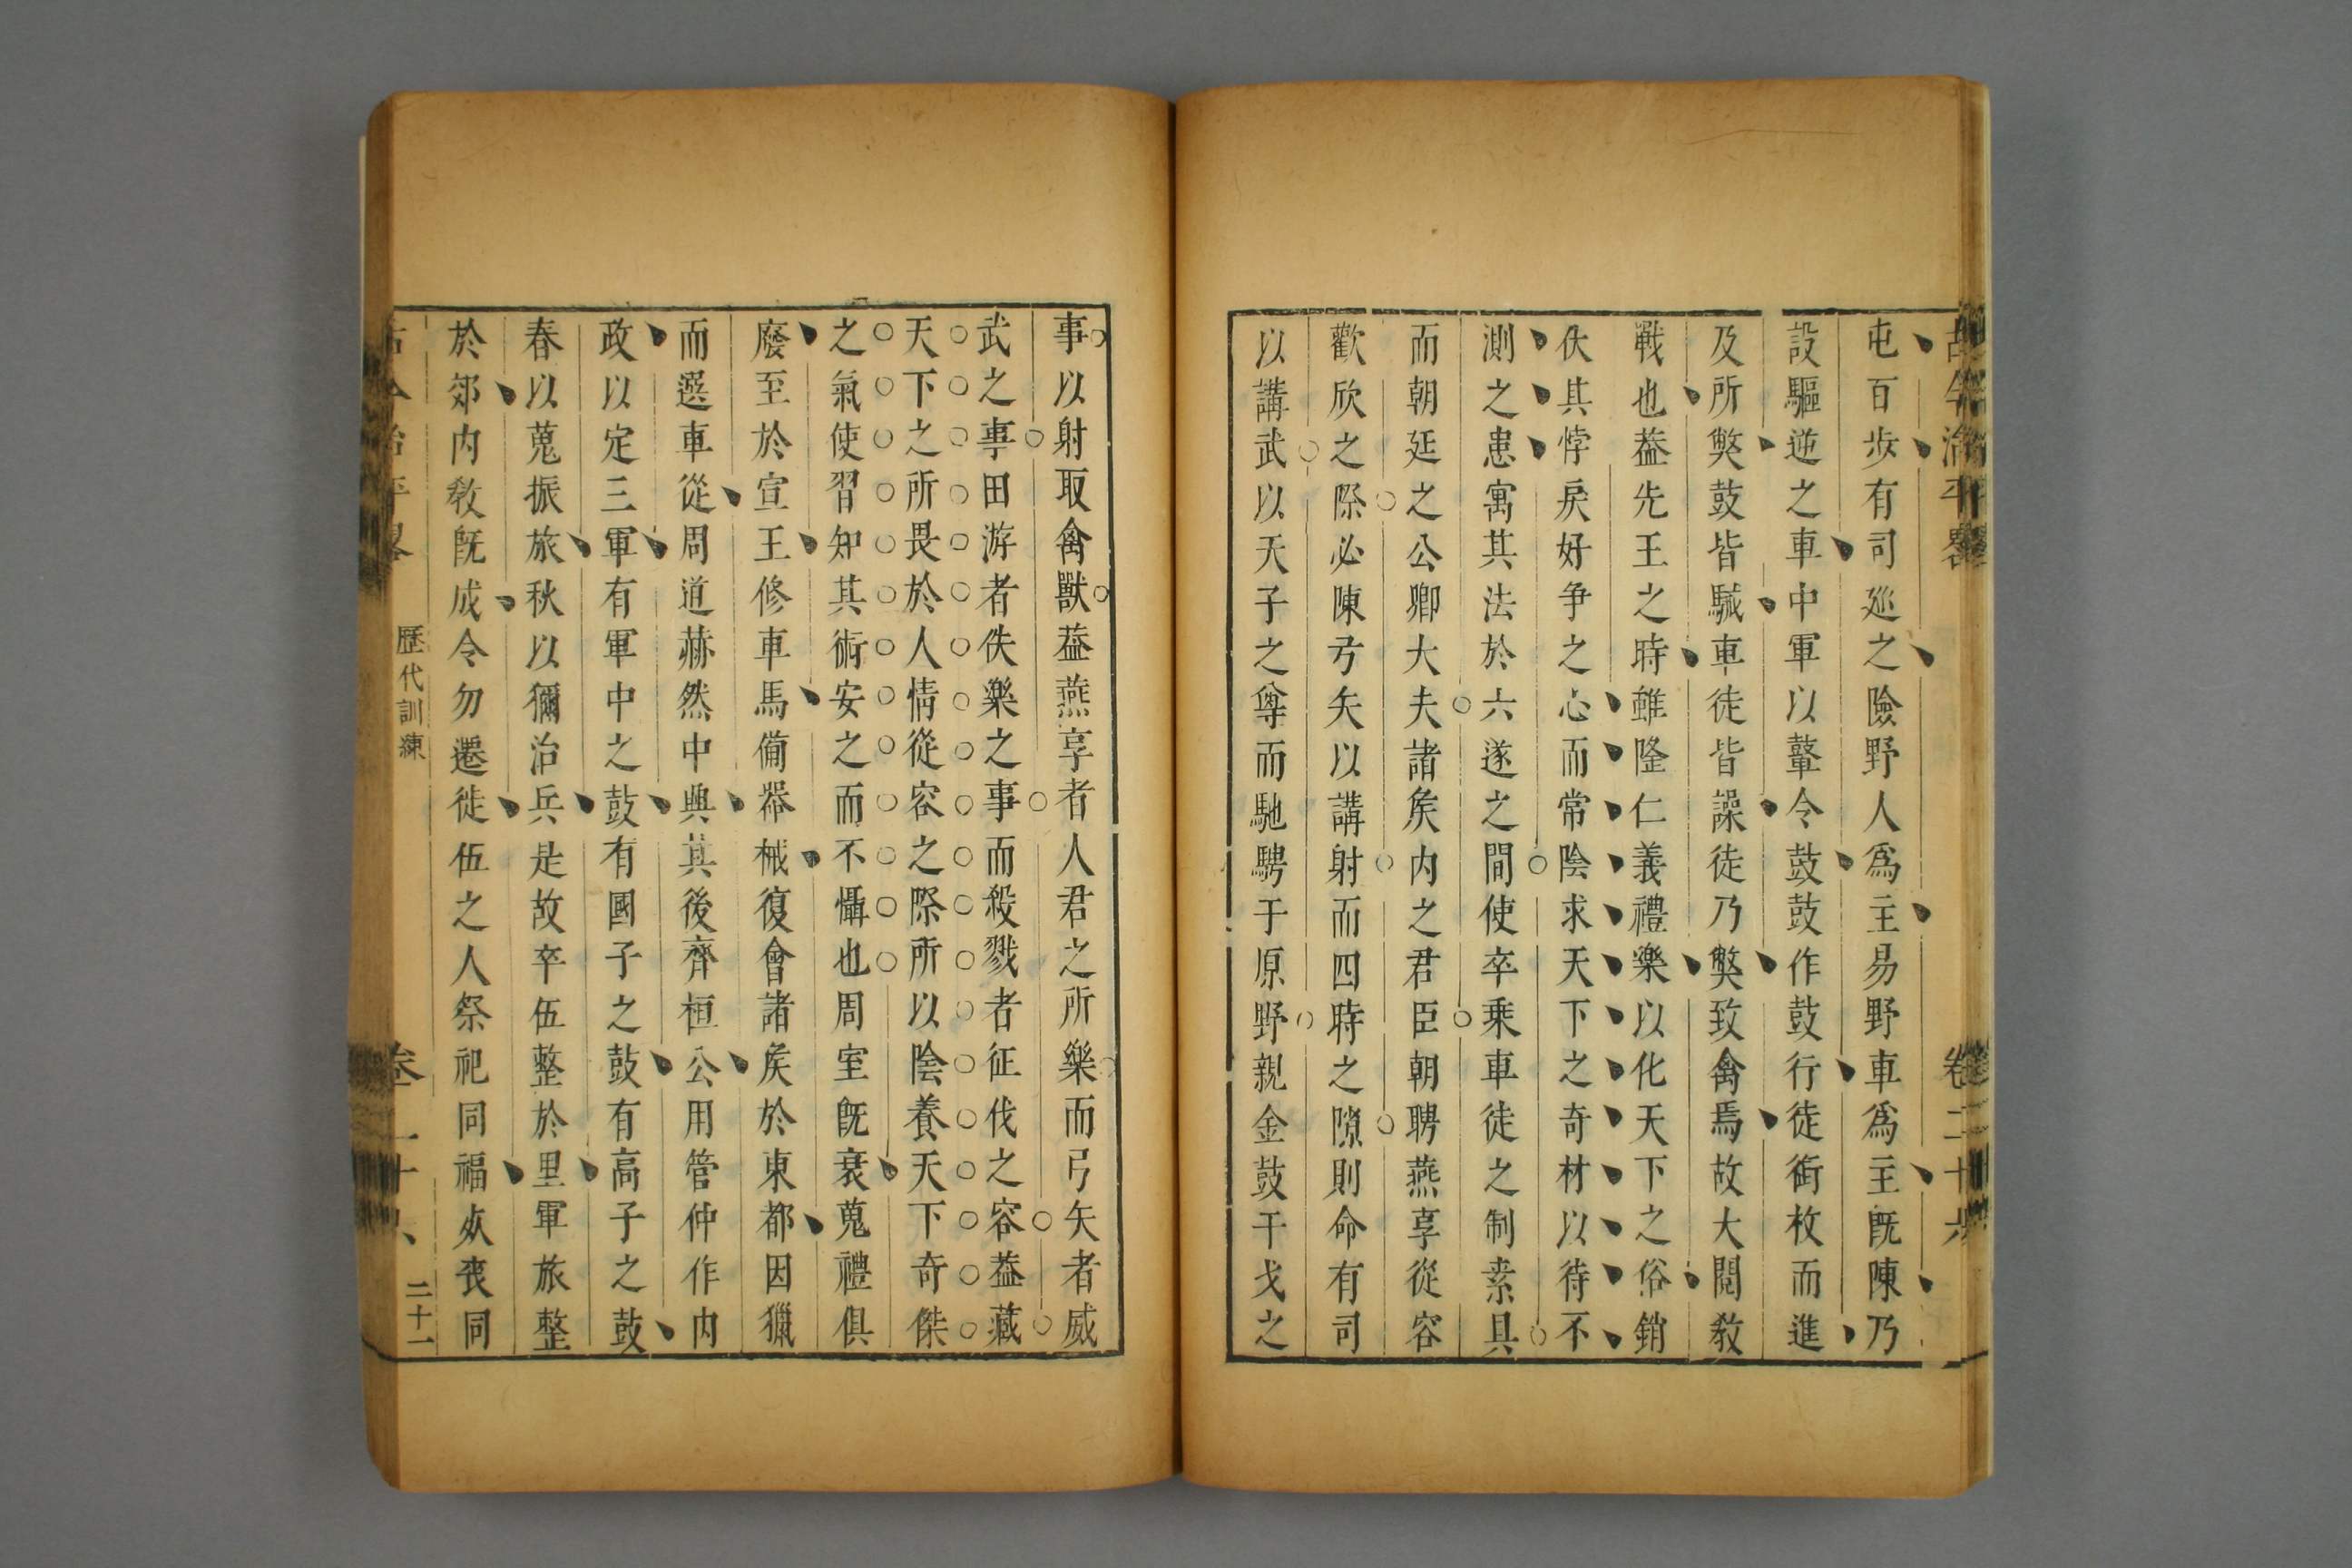 古今治平畧 卷二十六
屯百步有司巡之險野人爲主易野車爲主旣陳乃
設驅逆之車中軍以鼙令鼓鼓作鼓行徒銜枚而進
及所弊鼓皆駴車徒皆譟徒乃弊致禽焉故大閱敎
戰也葢先王之時雖隆仁義禮樂以化天下之俗銷
佚其悖戾好爭之心而常陰求天下之奇材以待不
測之患寓其法於六遂之間使卒乗車徒之制素具
而朝廷之公卿大夫諸矦内之君臣朝聘燕享從容
歡欣之際必陳弓矢以講射而四時之隙則命有司
以講武以天子之尊而馳騁于原野親金鼓干戈之
事以射取禽獸葢燕享者人君之所樂而弓矢者威
武之事田游者佚樂之事而殺戮者征伐之容葢藏
天下之所畏於人情從容之際所以陰養天下奇傑
之氣使習知其術安之而不懾也周室旣衰蒐禮俱
廢至於宣王修車馬備器械復會諸矦於東都因獵
而選車從周道赫然中興其後齊桓公用管仲作内
政以定三軍有軍中之鼓有國子之鼓有高子之鼓
春以蒐振旅秋以獮治兵是故卒伍整於里軍旅整
於郊内敎旣成令勿遷徙伍之人祭祀同福死喪同
歷代訓練
二十一